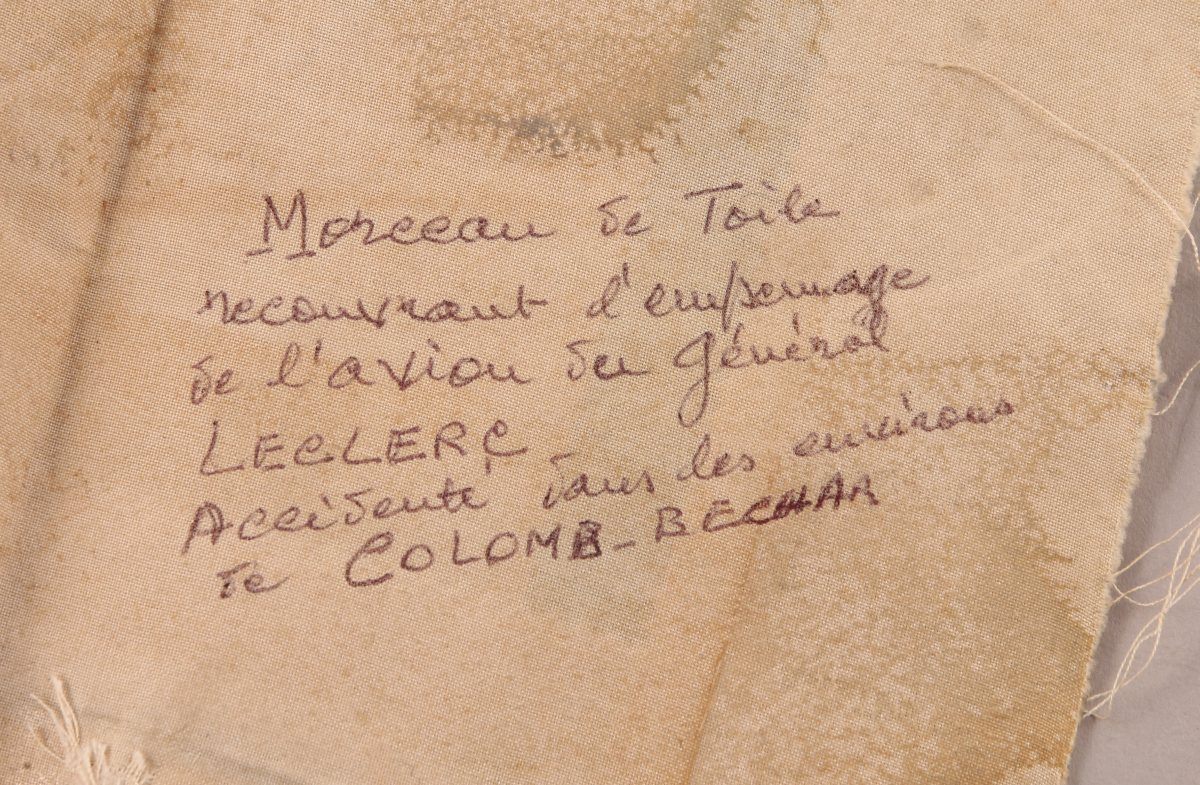 Morceau de Toile
recouvrant l'empennage
de l'avion du Général
LECLERC _
Accidenté dans les environs
de COLOMB-BECHAR